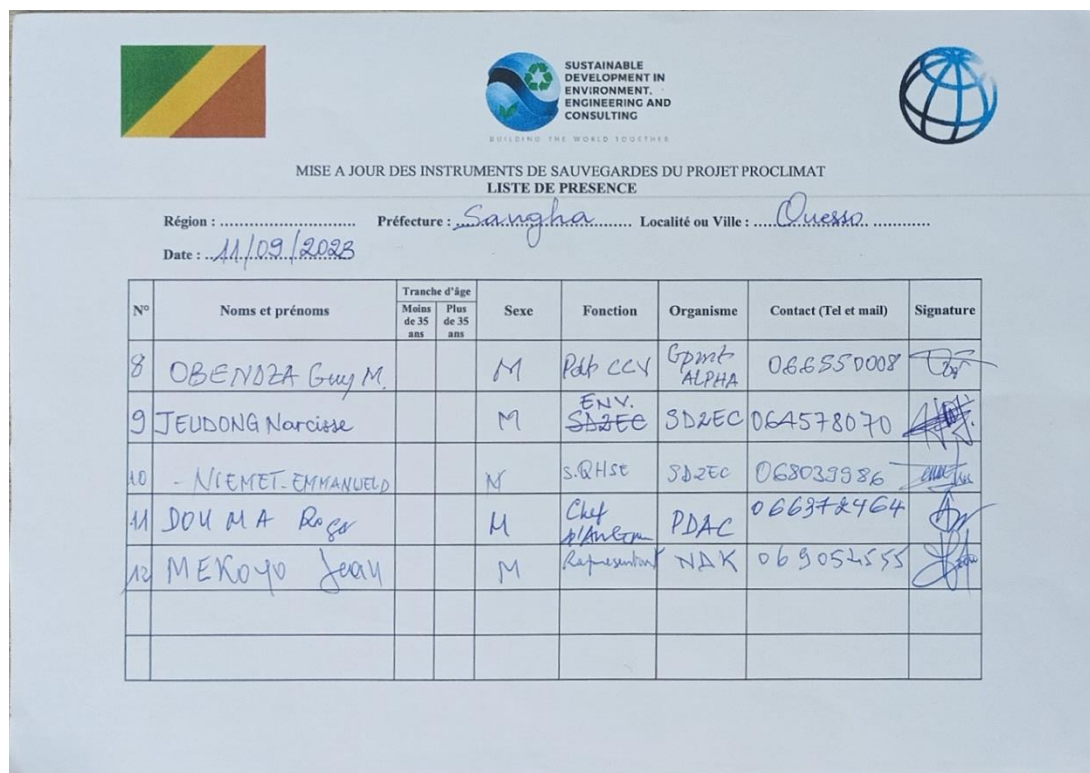 SUSTAINABLE
DEVELOPMENT IN
ENVIRONMENT.
ENGINEERING AND
CONSULTING
BUILDING THE WORLD TOGETHER
MISE A JOUR DES INSTRUMENTS DE SAUVEGARDES DU PROJET PROCLIMAT
LISTE DE PRESENCE
Région : ............................ Préfecture : Sangha Localité ou Ville : Ouesso
Date : 11/09/2023
N° Noms et prénoms Tranche d'âge Moins de 35 ans Plus de 35 ans Sexe Fonction Organisme Contact (Tel et mail) Signature
8 OBENDZA Guy M. M CCV Gpmt ALPHA 066550008
9 JEUDONG Narcisse M ENV. SD2EC SD2EC 064578070
10 - NIEMET-EMMANUELD M S.QHSE SD2EC 068039986
11 DOUMA M Chef PDAC 066372464
12 MEKOYO Jean M Representant NDK 069054555